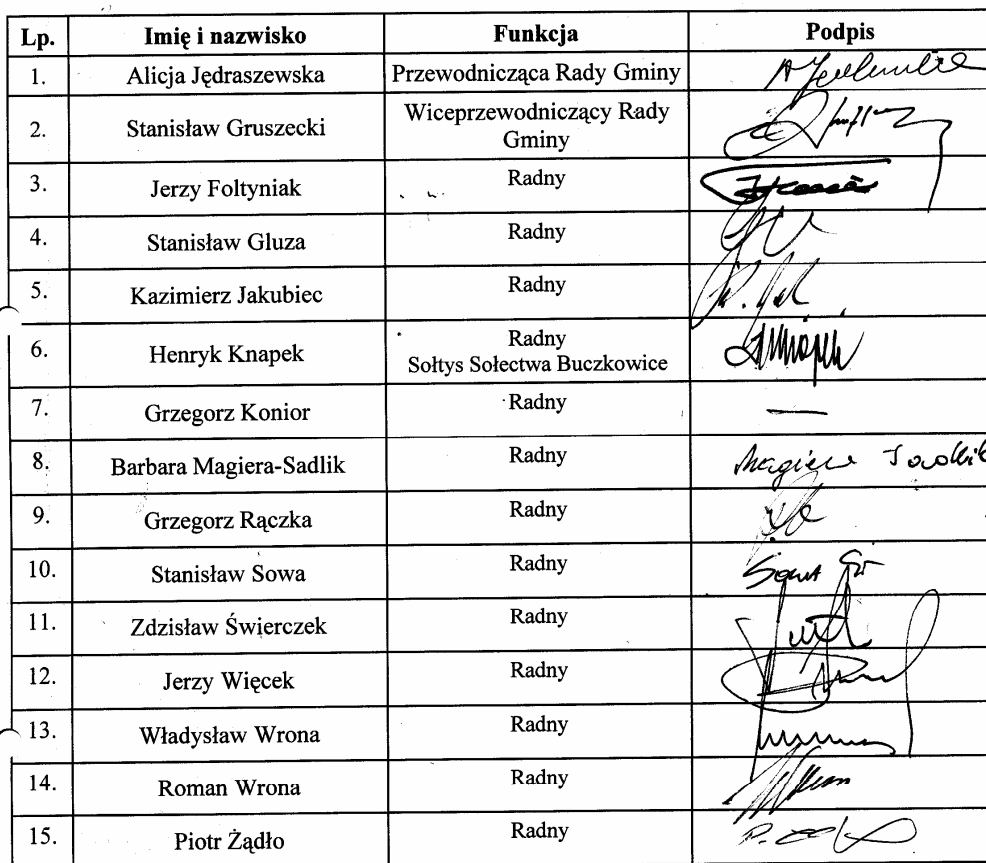 Lp. Imię i nazwisko Funkcja Podpis
1. Alicja Jędraszewska Przewodnicząca Rady Gminy
2. Stanisław Gruszecki Wiceprzewodniczący Rady
Gminy
3. Jerzy Foltyniak Radny
4. Stanisław Gluza Radny
5. Kazimierz Jakubiec Radny
6. Henryk Knapek Radny
Sołtys Sołectwa Buczkowice
7. Grzegorz Konior Radny —
8. Barbara Magiera-Sadlik Radny Magiera Sadlik
9. Grzegorz Rączka Radny
10. Stanisław Sowa Radny Sowa St
11. Zdzisław Świerczek Radny
12. Jerzy Więcek Radny
13. Władysław Wrona Radny
14. Roman Wrona Radny
15. Piotr Żądło Radny